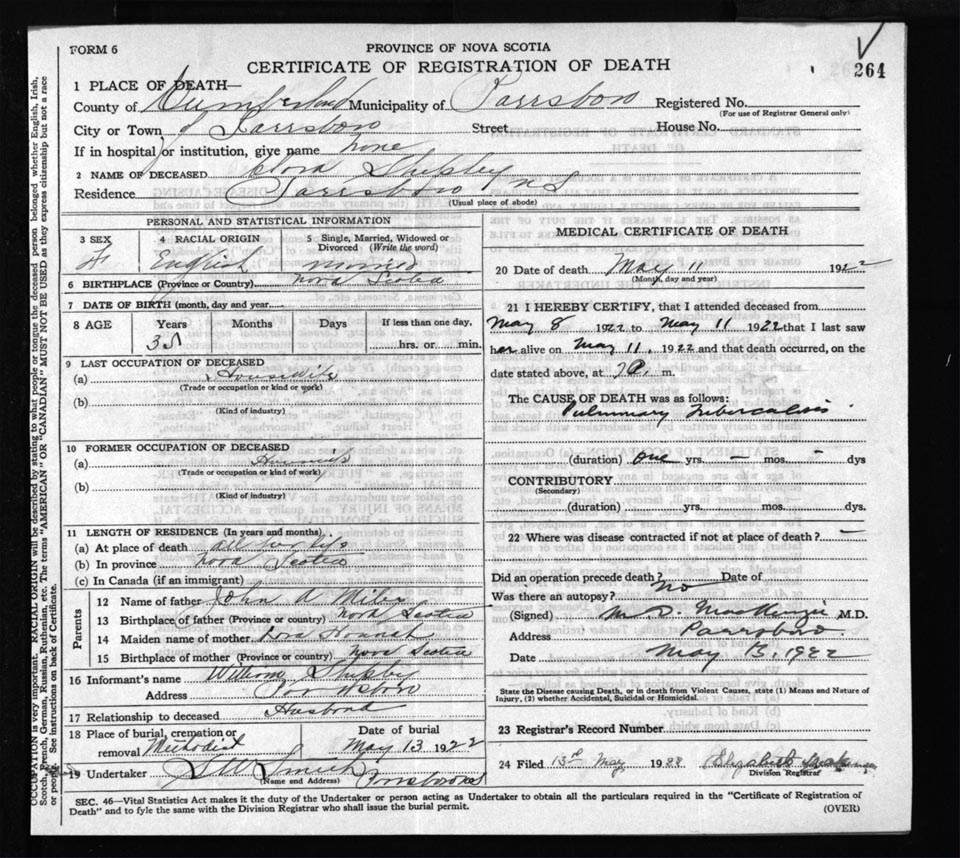 FORM 6
PROVINCE OF NOVA SCOTIA
CERTIFICATE OF REGISTRATION OF DEATH
264
1 PLACE OF DEATH—
County of Cumberland Municipality of Parrsboro Registered No.
(For use of Registrar General only)
City or Town of Parrsboro Street House No.
If in hospital or institution, give name None
2 NAME OF DECEASED Shipley
Residence Parrsboro N S
(Usual place of abode)
PERSONAL AND STATISTICAL INFORMATION
3 SEX
F
4 RACIAL ORIGIN
English
5 Single, Married, Widowed or Divorced (Write the word)
Married
6 BIRTHPLACE (Province or Country) Nova Scotia
7 DATE OF BIRTH (month, day and year)
8 AGE Years Months Days If less than one day,
hrs. or min.
9 LAST OCCUPATION OF DECEASED
(a) Housewife
(Trade or occupation or kind or work)
(b)
(Kind of industry)
10 FORMER OCCUPATION OF DECEASED
(a) Housewife
(Trade or occupation or kind of work)
(b)
(Kind of industry)
11 LENGTH OF RESIDENCE (In years and months)
(a) At place of death all her life
(b) In province Nova Scotia
(c) In Canada (if an immigrant)
Parents
12 Name of father John A
13 Birthplace of father (Province or country) Nova Scotia
14 Maiden name of mother Hannah
15 Birthplace of mother (Province or country) Nova Scotia
16 Informant's name Shipley
Address Parrsboro
17 Relationship to deceased Husband
18 Place of burial, cremation or removal Methodist
Date of burial
May 13 1922
19 Undertaker Smith Parrsboro
(Name and Address)
MEDICAL CERTIFICATE OF DEATH
20 Date of death May 11 1922
(Month, day and year)
21 I HEREBY CERTIFY, that I attended deceased from
May 8 1922 to May 11 1922 that I last saw
her alive on May 11, 1922 and that death occurred, on the
date stated above, at m.
The CAUSE OF DEATH was as follows:
Pulmonary Tuberculosis
(duration) one yrs. — mos. — dys
CONTRIBUTORY
(Secondary)
(duration) yrs. mos. dys.
22 Where was disease contracted if not at place of death? —
Did an operation precede death? No Date of
Was there an autopsy?
(Signed) M. D. MacKenzie M.D.
Address Parrsboro.
Date May 13, 1922
State the Disease causing Death, or in death from Violent Causes, state (1) Means and Nature of
Injury, (2) whether Accidental, Suicidal or Homicidal.
23 Registrar's Record Number
24 Filed 13th May 1922 Elizabeth
Division Registrar
SEC. 46—Vital Statistics Act makes it the duty of the Undertaker or person acting as Undertaker to obtain all the particulars required in the "Certificate of Registration of
Death" and to fyle the same with the Division Registrar who shall issue the burial permit.
(OVER)
OCCUPATION is very important. RACIAL ORIGIN will be described by stating to what people or tongue the deceased person belonged whether English, Irish,
Scotch, French, German, Russian, Ruthenian, etc. The terms "AMERICAN" OR "CANADIAN" MUST NOT BE USED as they express citizenship but not a race
or people. See instructions on back of Certificate.